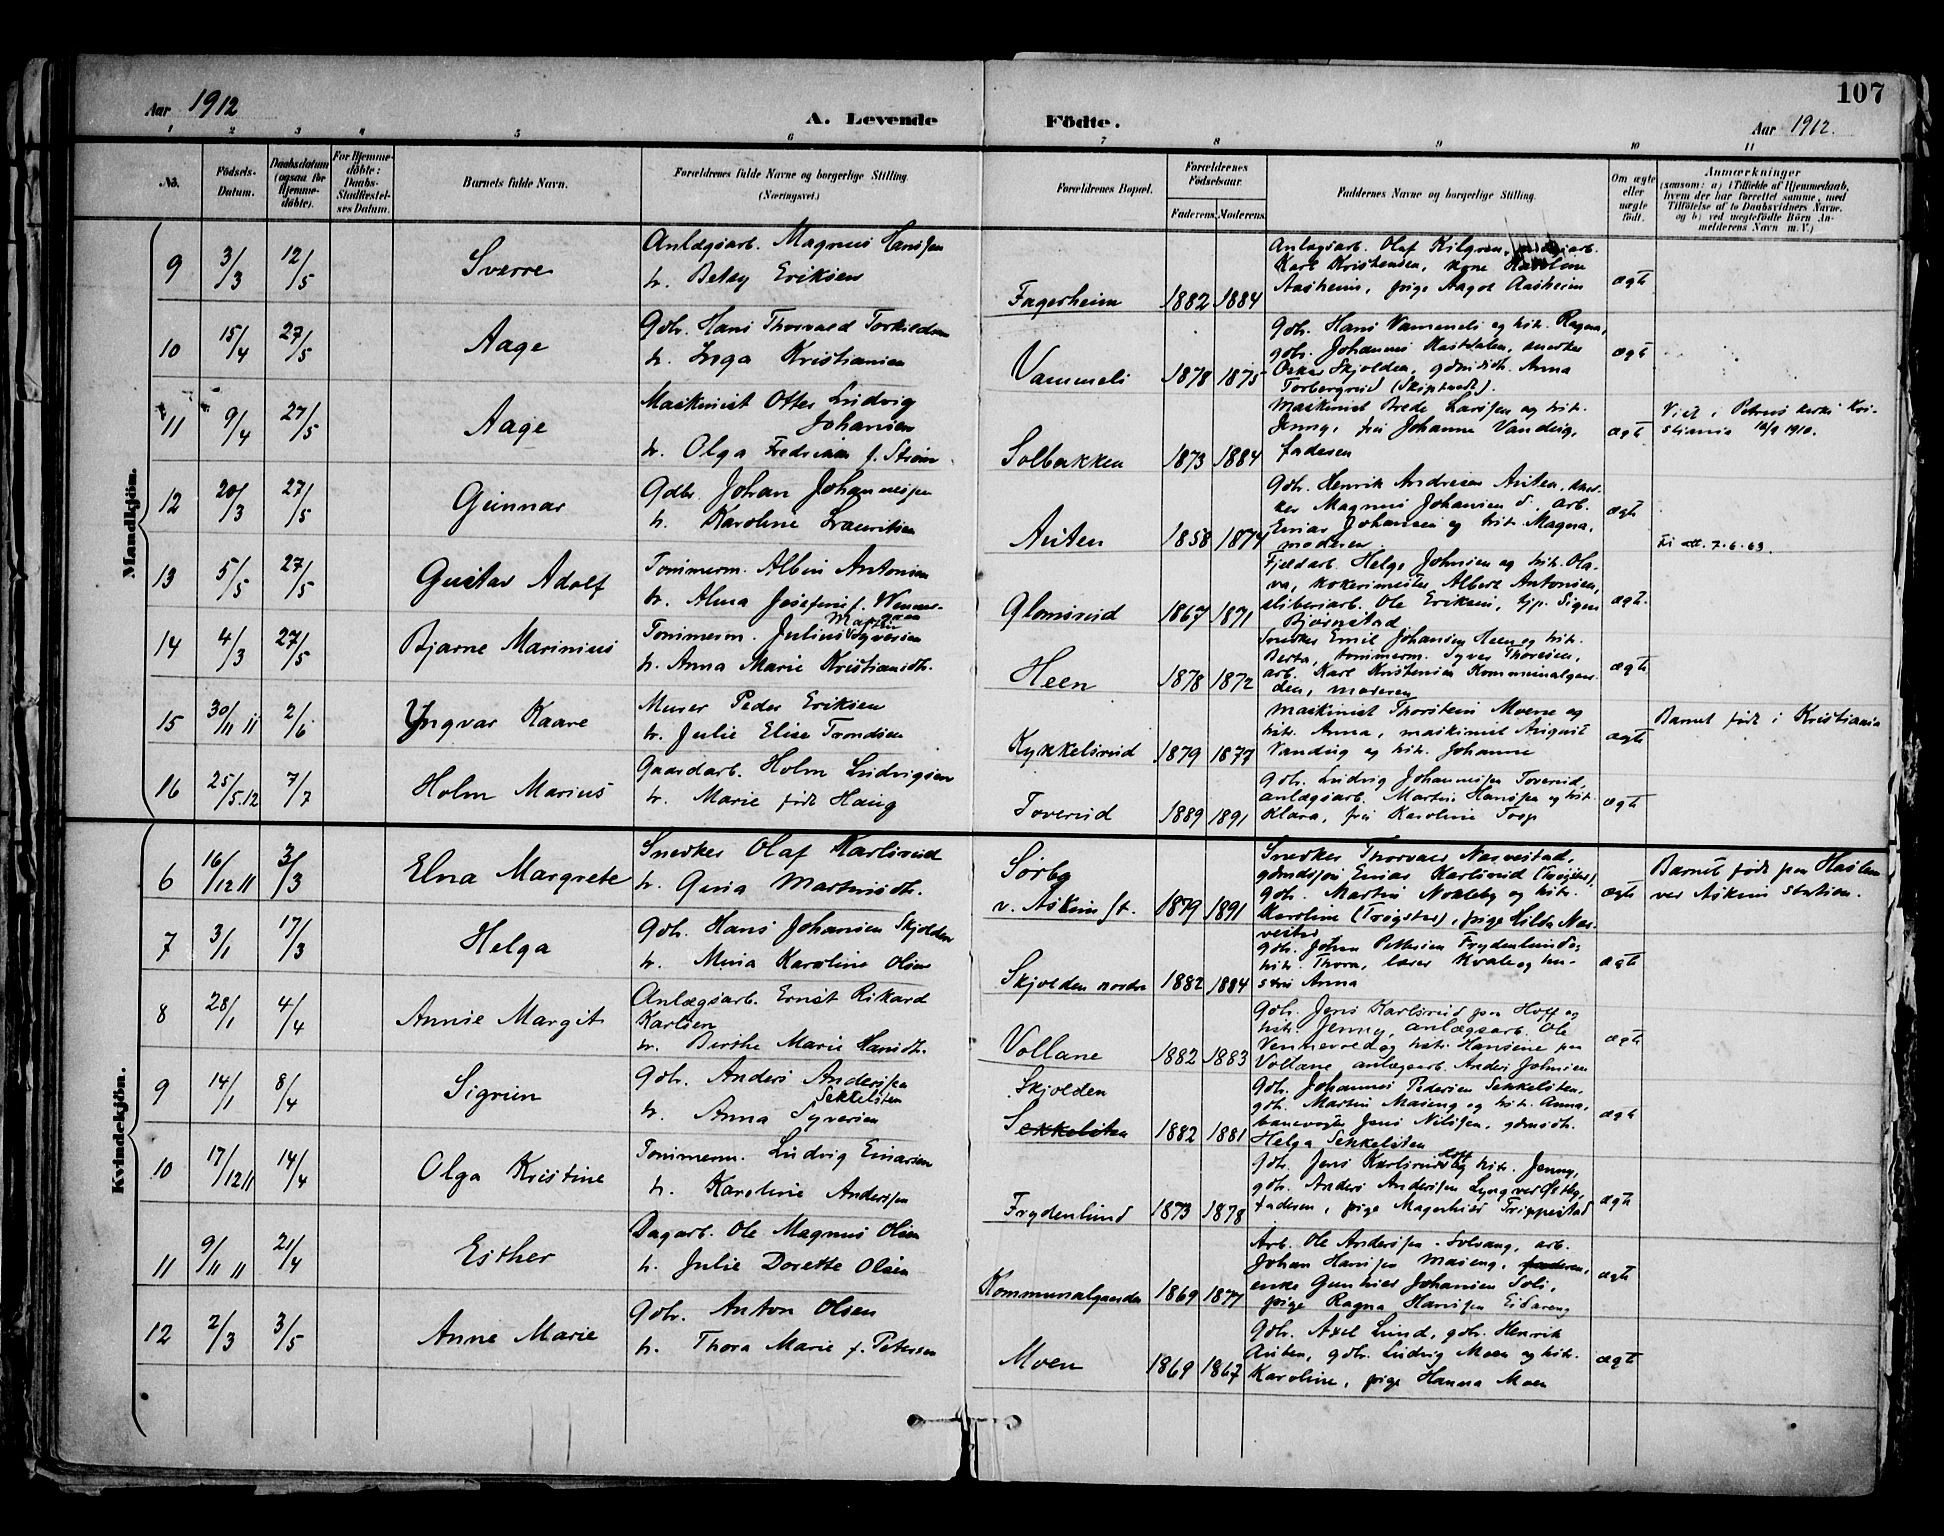 107
Aar 1912
A. Levende Födte.
Aar 1912.
1 2 3 4 5 6 7 8 9 10 11
No.
Födsels-Datum.
Daabsdatum (ogsaa for Hjemme-döbte).
For Hjemme-döbte: Daabs-Stadfæstel-ses Datum.
Barnets fulde Navn.
Forældrenes fulde Navne og borgerlige Stilling.
(Næringsvei.)
Forældrenes Bopæl.
Forældrenes Födselsaar.
Faderens Moderens
Faddernes Navne og borgerlige Stilling.
Om ægte eller uægte födt.
Anmærkninger
(saasom: a) i Tilfælde af Hjemmedaab,
hvem der har forrettet samme, med
Tilföielse af to Daabsvidners Navne.
og b) ved uægtefödte Börn An-
melderens Navn m. V.)
Mandkjön.
9 3/3 12/5 Sverre
Anlægsarb. Magnus Hansen
h. Betsy Eriksen
Fagerheim 1882 1884
Anlægsarb. Olaf Kilgren,
Karl Kristensen, kone
Aasheim, pige Aagot Aasheim
ægte
10 15/4 27/5 Aage
Gdbr. Hans Thorvald Torkildsen
h. Inga Kristiansen
Vammeli 1878 1875
Gdbr. Hans Vammeli og hstr. Ragna,
gdbr. Johannes Hastdalen, snedker
Oskar Skjolden, gdmdsdtr. Anna
Torbergrud (Skiptvedt).
ægte
11 9/4 27/5 Aage
Maskinist Otto Ludvig
Johansen
h. Olga Fredrikke f. Strøm
Solbakken 1873 1884
Maskinist Brede Larsen og hstr.
Jenny, fru Johanne Vandvig,
faderen
ægte
Viet i Petrus kirke Kri-
stiania 10/9 1910.
12 20/3 27/5 Gunnar
Gdbr. Johan Johannesen
h. Karoline Lauritsen
Auten 1858 1874
Gdbr. Henrik Andresen Auten, sned-
ker Magnus Johansen d., arb.
Einar Johansen og hstr. Magna,
moderen
ægte
Fi att. 7.6.63.
13 5/5 27/5 Gustav Adolf
Tømmerm. Albin Antonsen
h. Alma Josefine f. Wenner-
gren
Glomsrud 1867 1871
Fjeldarb. Helge Johnsen og hstr. Ola-
va, kokerimester Albert Antonsen,
sliberiarb. Ole Eriksen, tjp. Signe
Bjørnstad
ægte.
14 4/3 27/5 Bjarne Marinius
Tømmerm. Julius Martin Syversen
h. Anna Marie Kristiansdtr.
Heen 1878 1872
Snedker Emil Johansen Heen og hstr.
Berta, tømmerm. Syver Thoresen,
arb. Karl Kristensen Kommunalgaar-
den, moderen
ægte
15 30/11 11 2/6 Yngvar Kaare
Murer Peder Eriksen
h. Julie Elise Trondsen
Kykkelsrud 1879 1877
Maskinist Thorstein Moene og
hstr. Anna, maskinist August
Vandvig og hstr. Johanne
ægte
Barnet født i Kristiania
16 25/5.12 7/7 Holm Marius
Gaardarb. Holm Ludvigsen
h. Marie født Haug
Toverud 1889 1891
Gdbr. Ludvig Johannesen Toverud,
anlægsarb. Martin Hansen og hstr.
Klara, fru Karoline Torp
ægte
Kvindekjön.
6 16/12 11 3/3 Elna Margrete
Snedker Olaf Karlsrud
h. Gina Martinsdtr.
Sørby
v. Askim st. 1879 1891
Snedker Thorvald Narvestad,
gdmdssøn Einar Karlsrud (Trøgstad),
gdbr. Martin Nokleby og hstr.
Karoline (Trøgstad), pige Hilda Nar-
vestad
ægte
Barnet født paa Haslem
ved Askim station.
7 3/1 17/3 Helga
Gdbr. Hans Johansen Skjolden
h. Mina Karoline Olsen
Skjolden nordre 1882 1884
Gdbr. Johan Pettersen Frydenlund og
hstr. Thora, lærer Kvale og hu-
stru Anna
ægte
8 28/1 4/4 Annie Margit
Anlægsarb. Ernst Rikard
Karlsen
h. Berthe Marie Hansdtr.
Vollane 1882 1883
Gdbr. Jens Karlsrud paa Hoff og
hstr. Jenny, anlægsarb. Ole
Vennevold og hstr. Hansine paa
Vollane anlægsarb. Anders Johnsen
ægte
9 14/1 8/4 Sigrun
Gdbr. Anders Andersen
Sekkelsten
h. Anna Syversen
Skjolden
Sekkelsten 1882 1881
Gdbr. Johannes Pedersen Sekkelsten,
gdbr. Martin Maseng og hstr. Anna,
banevogter Jens Nilsen, gdmdsdtr.
Helga Sekkelsten
ægte
10 17/12 11 14/4 Olga Kristine
Tømmerm. Ludvig Einarsen
h. Karoline Andersen
Frydenlund 1873 1878
Gdbr. Jens Karlsrud Hoff og hstr. Jenny,
gdbr. Anders Andersen Lyng ved Østby,
faderen, pige Magnhild Trippestad
ægte
11 9/11 11 21/4 Esther
Dagarb. Ole Magnus Olsen
h. Julie Dorette Olsen
Kommunalgaarden 1869 1877
Arb. Ole Andersen Solvang, arb.
Johan Hansen Maseng, faderen,
enke Gunhild Johansen Soli,
pige Ragna Hansen Eidareng
ægte
12 2/3 3/5 Anne Marie
Gdbr. Anton Olsen
h. Thora Marie f. Petersen
Moen 1869 1867
Gdbr. Axel Lund, gdbr. Henrik
Auten, gdbr. Ludvig Moen og hstr.
Karoline, pige Hanna Moen
ægte